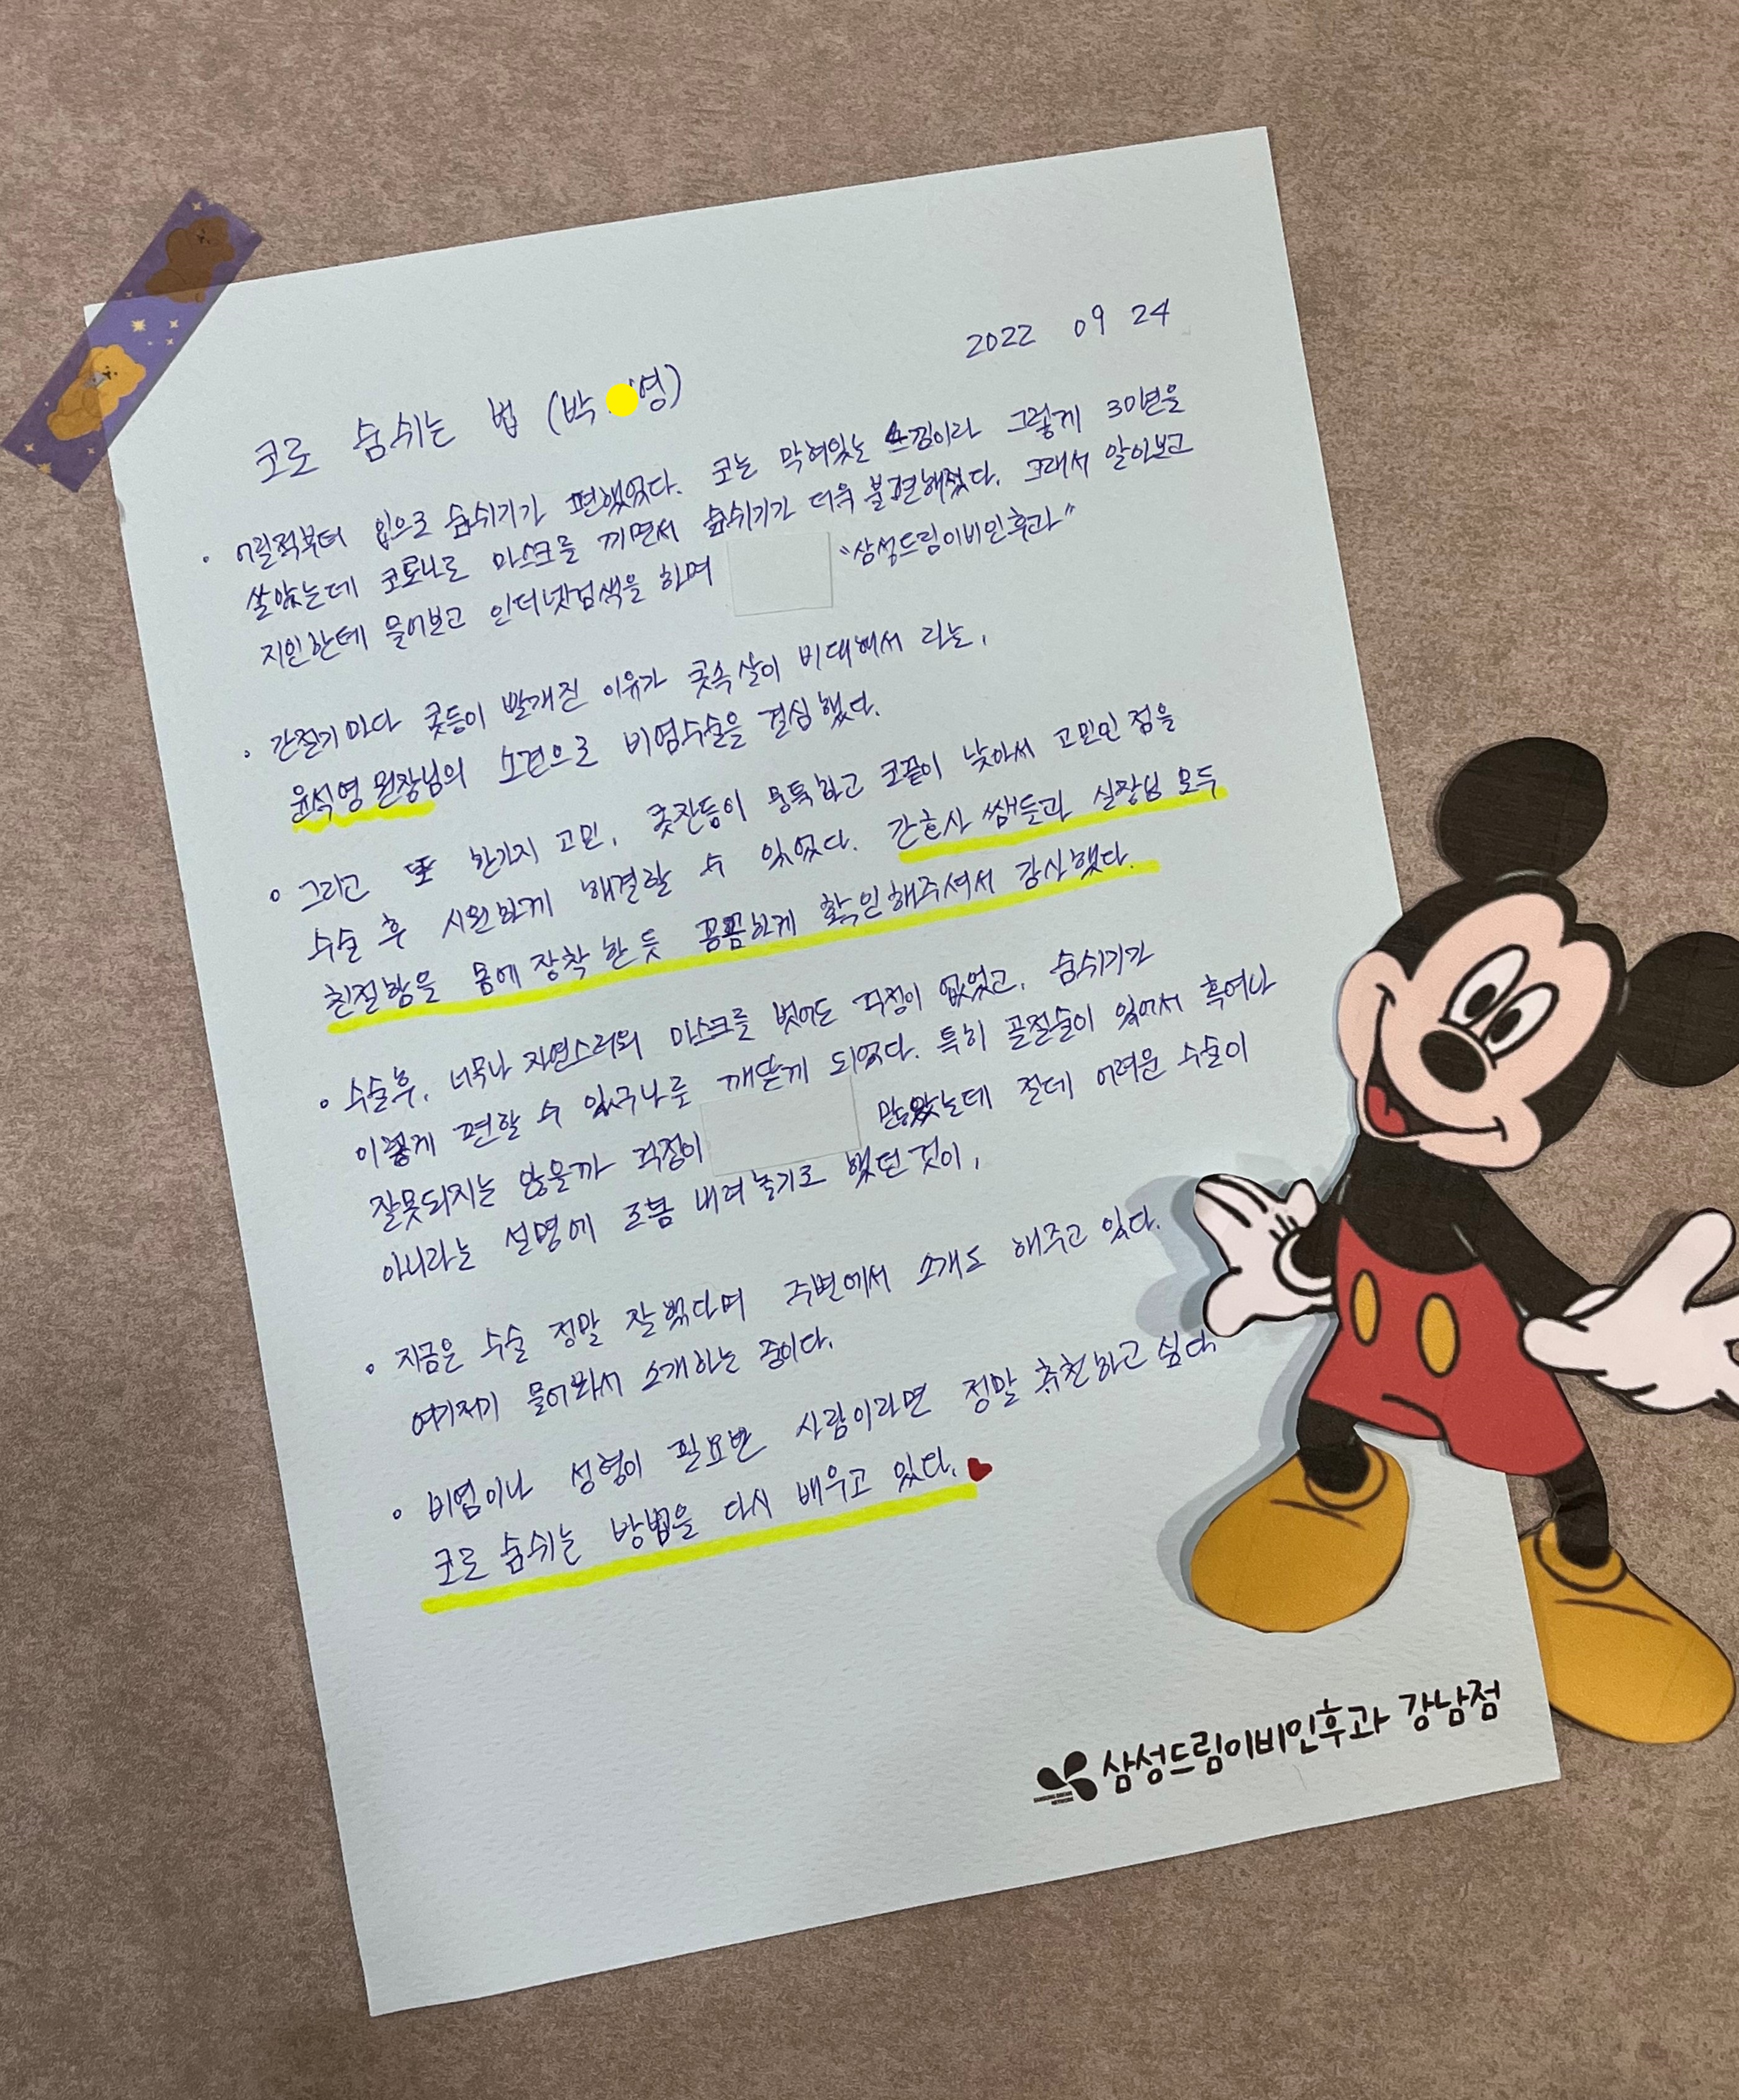 2022 09 24
코로 숨쉬는 법 (박 영)
· 어릴적부터 입으로 숨쉬기가 편했었다. 코는 막혀있는 느낌이라 그렇게 30년을
살았는데 코로나로 마스크를 끼면서 숨쉬기가 더욱 불편해졌다. 그래서 알아보고
지인한테 물어보고 인터넷검색을 하며 "삼성드림이비인후과"
· 간절기마다 콧등이 빨개진 이유가 콧속살이 비대해서 라는,
윤석영 원장님의 소견으로 비염수술을 결심했다.
· 그리고 또 한가지 고민, 콧잔등이 뭉툭하고 코끝이 낮아서 고민인 점을
수술 후 시원하게 해결할 수 있었다. 간호사 쌤들과 실장님 모두
친절함을 몸에 장착 한 듯 꼼꼼하게 확인해주셔서 감사했다.
· 수술후, 너무나 자연스러워 마스크를 벗어도 걱정이 없었고, 숨쉬기가
이렇게 편할 수 있구나로 깨닫게 되었다. 특히 골절술이 있어서 혹여나
잘못되지는 않을까 걱정이 많았는데 절대 어려운 수술이
아니라는 설명에 조봄 내려놓기로 했던것이,
· 지금은 수술 정말 잘했다며 주변에서 소개도 해주고 있다.
여기저기 물어와서 소개하는 중이다.
· 비염이나 성형이 필요한 사람이라면 정말 추천하고 싶다
코로 숨쉬는 방법을 다시 배우고 있다.
삼성드림이비인후과 강남점